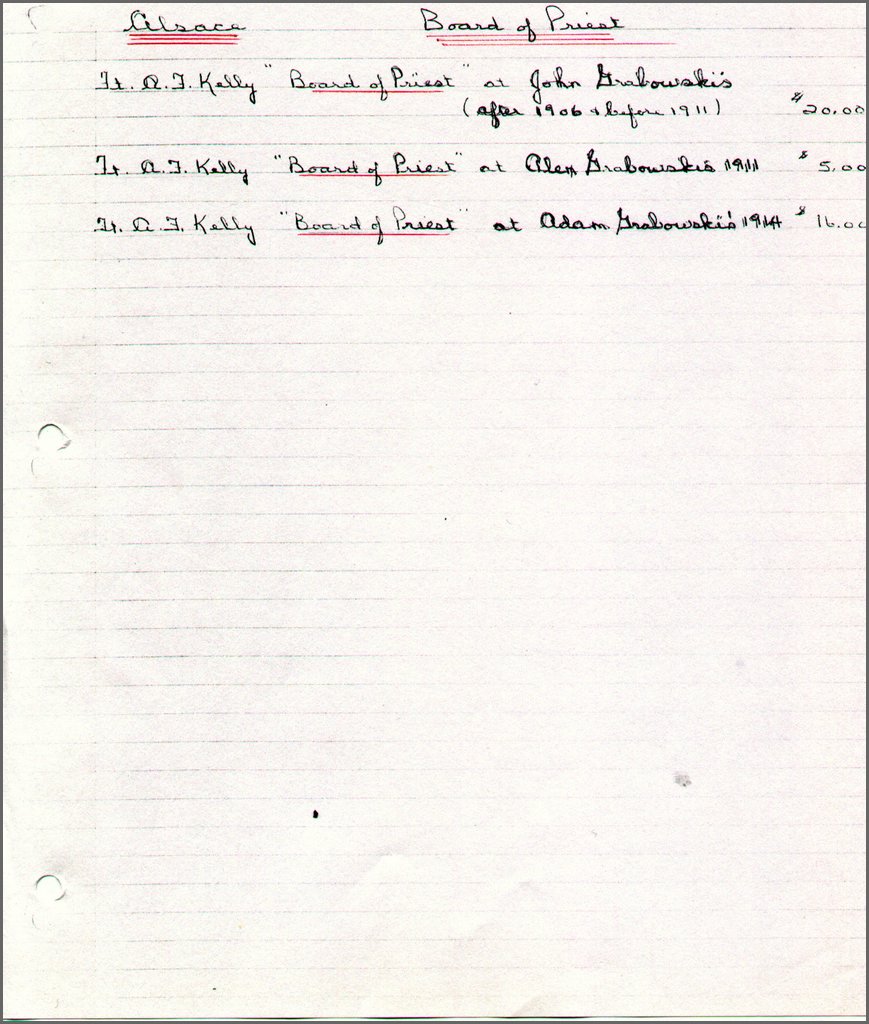 Alsace Board of Priest
Fr. A. F. Kelly "Board of Priest" at John Grabowski's
(after 1906 + before 1911) $20.00
Fr. A. F. Kelly "Board of Priest" at Alex Grabowski's 1911 $5.00
Fr. A. F. Kelly "Board of Priest" at Adam Grabowski's 1914 $16.00